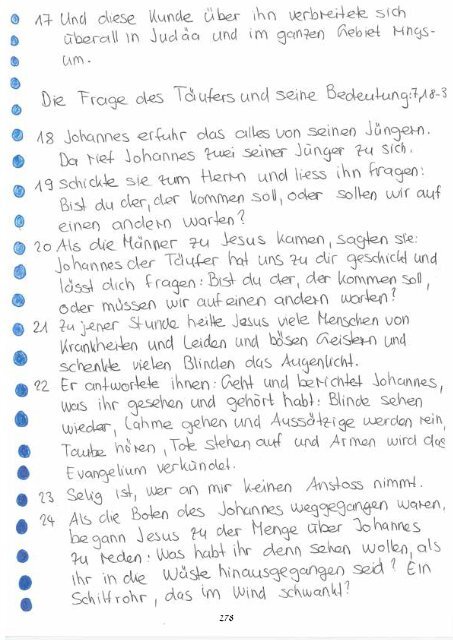 17 Und diese Kunde über ihn verbreitete sich
überall in Judäa und im ganzen Gebiet rings-
um.
Die Frage des Täufers und seine Bedeutung: 7,18-3
18 Johannes erfuhr das alles von seinen Jüngern.
Da rief Johannes zwei seiner Jünger zu sich.
19 schickte sie zum Herrn und liess ihn fragen:
Bist du der, der kommen soll, oder sollen wir auf
einen andern warten?
20 Als die Männer zu Jesus kamen, sagten sie:
Johannes der Täufer hat uns zu dir geschickt und
lässt dich fragen: Bist du der, der kommen soll,
oder müssen wir auf einen andern warten?
21 Zu jener Stunde heilte Jesus viele Menschen von
Krankheiten und Leiden und bösen Geistern und
schenkte vielen Blinden das Augenlicht.
22 Er antwortete ihnen: Geht und berichtet Johannes,
was ihr gesehen und gehört habt: Blinde sehen
wieder, Lahme gehen und Aussätzige werden rein,
Taube hören, Tote stehen auf und Armen wird das
Evangelium verkündet.
23 Selig ist, wer an mir keinen Anstoss nimmt.
24 Als die Boten des Johannes weggegangen waren,
begann Jesus zu der Menge über Johannes
zu reden: Was habt ihr denn sehen wollen, als
ihr in die Wüste hinausgegangen seid? Ein
Schilfrohr, das im Wind schwankt?
278